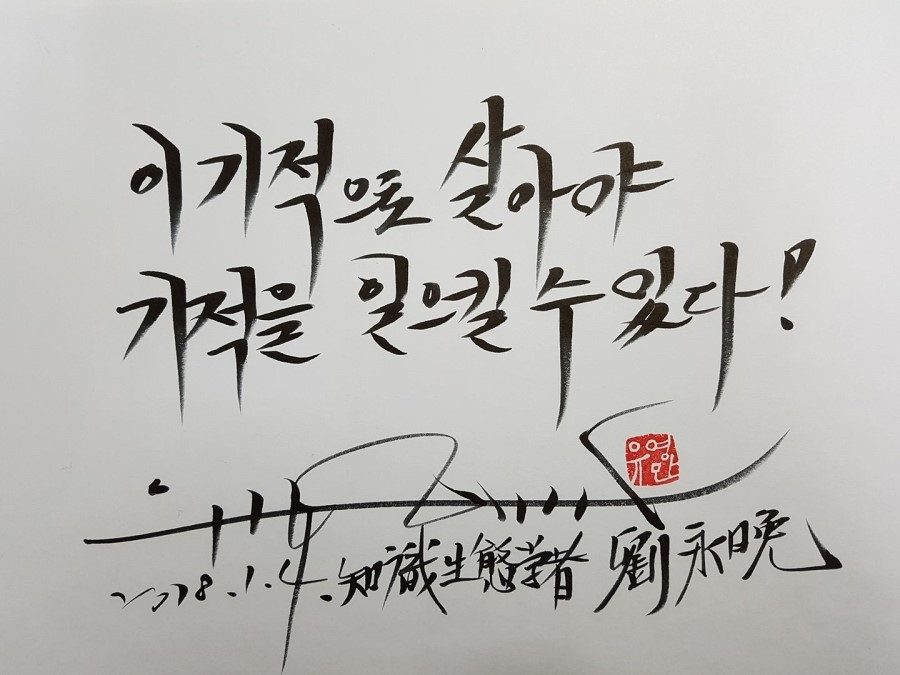 이기적으로 살아야
기적을 일으킬 수 있다!
유영만
2018.1.4. 知識生態学者 劉永晩